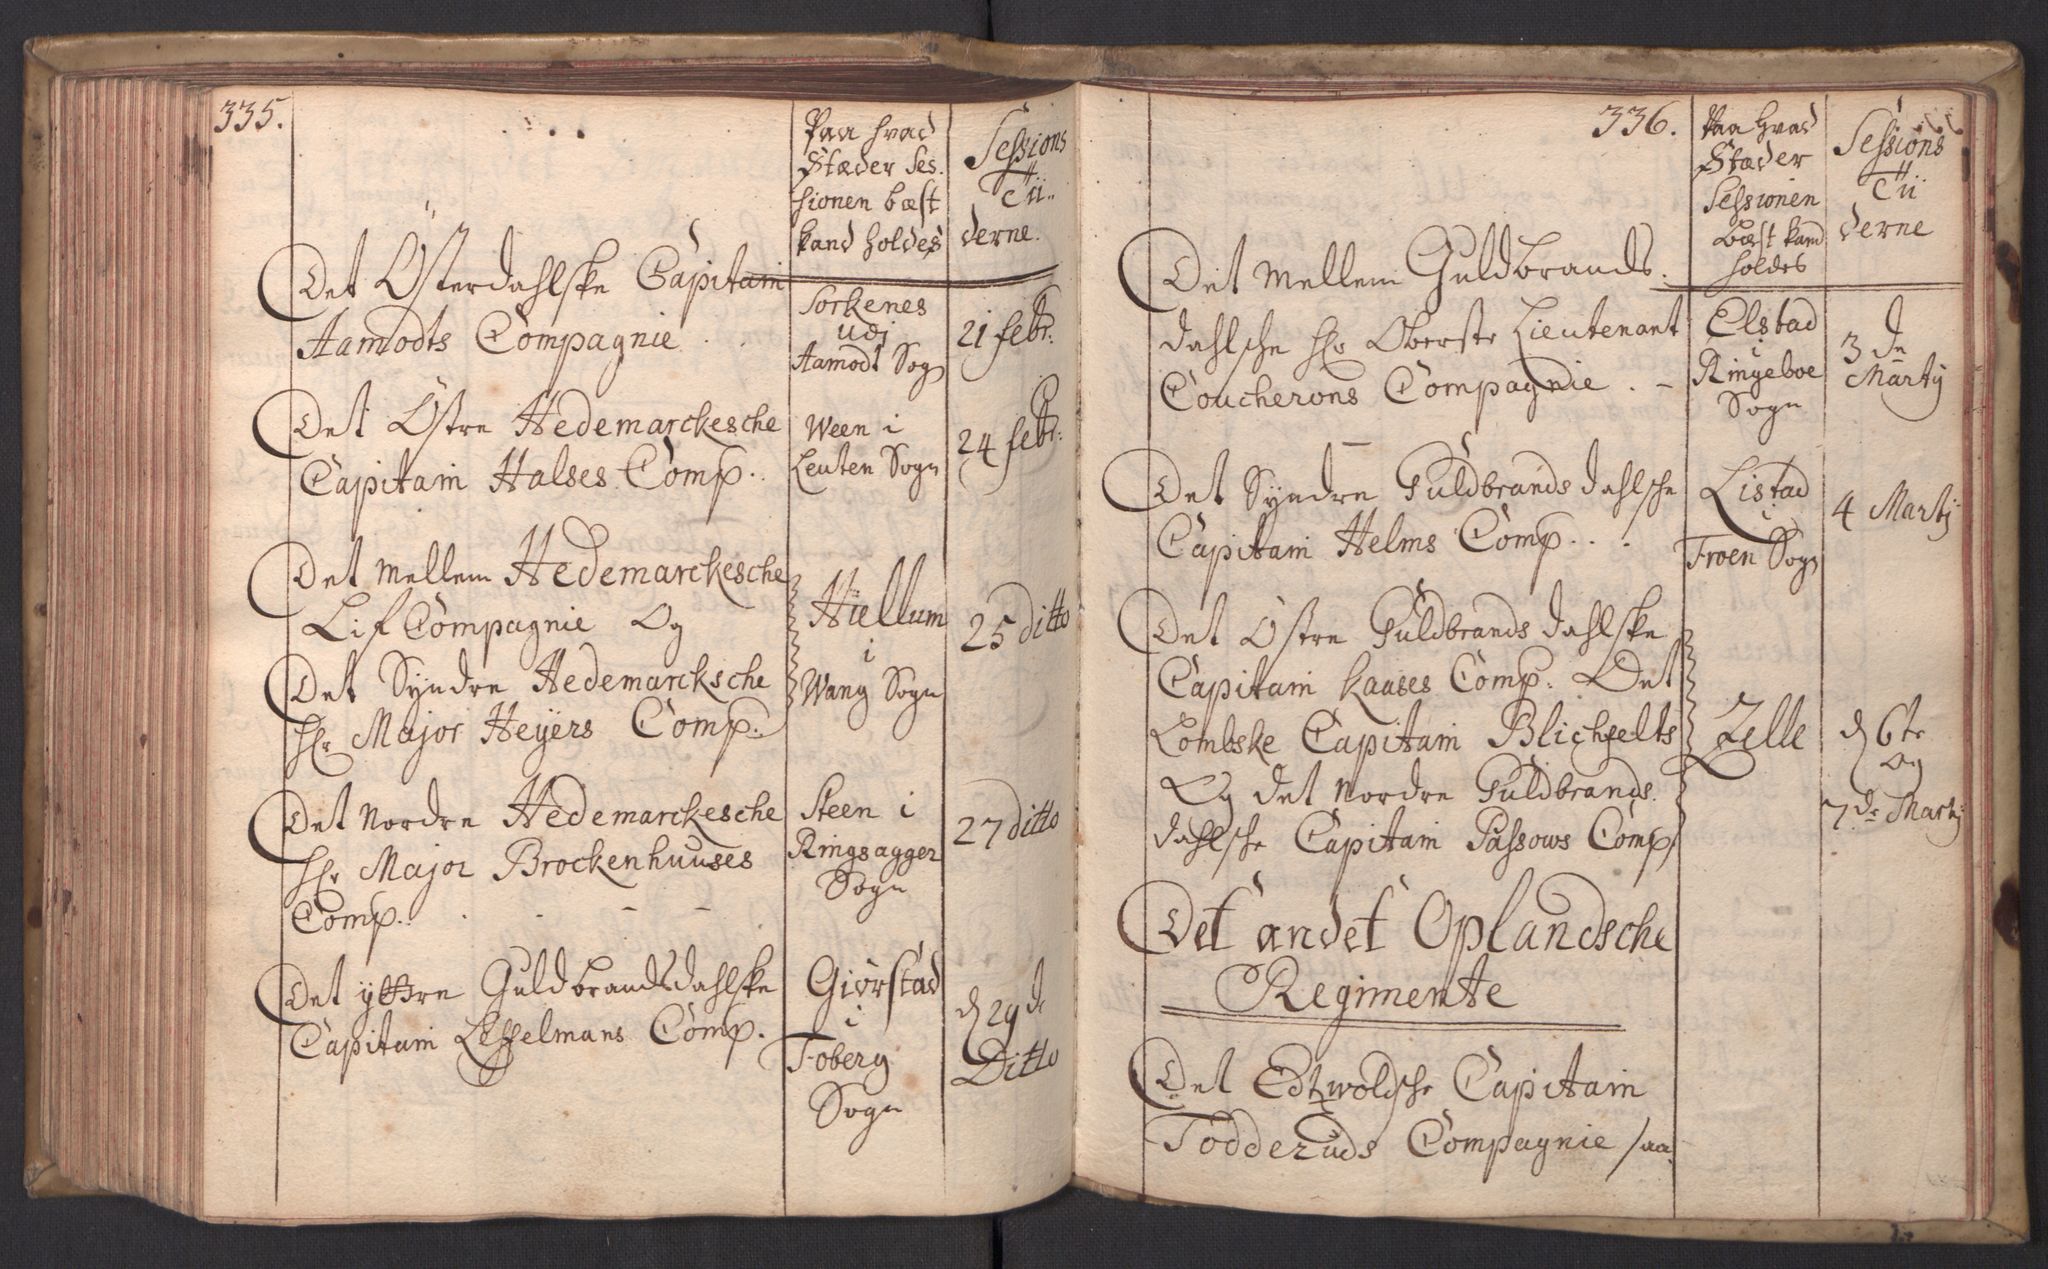 335.
Paa hvad
Stæder Ses-
sionen bæst
kand holdes
Sessions
Tii-
derne.
Det Österdahlske Capitain
Aamodts Compagnie
Sorkenes
udj
Aamodt Sogn
21 febr:
Det Östre Hedemarckesche
Capitain Halses Comp.
Ween i
Leuten Sogn
24 febr:
Det Mellem Hedemarckesche
Lif Compagnie Og
Det Syndre Hedemarcksche
Hr Major Heyers Comp:
Hiellum
i
Wang Sogn
25 ditto
Det Nordre Hedemarckesche
Hr Major Brockenhuuses
Comp.
Steen i
Ringsagger
Sogn
27 ditto
Det yttre Guldbrandsdahlske
Capitain Lesselmans Comp.
Giörstad
i
Foberg
Sogn
d 29 de
Ditto
336.
Paa hvad
Stæder
Sessionen
bæst kand
holdes
Sessions
Tii
derne
Det Mellem Guldbrands-
dahlsche Hr Oberste Lieutenant
Coucherons Compagnie
Elstad
i
Ringeboe
Sogn
3 de
Martij
Det Syndre Guldbrandsdahlsche
Capitain Helms Comp.
Listad
i
Froen Sogn
4 Martij
Det Östre Guldbrandsdahlske
Capitain Kaases Comp: Det
Lombske Capitain Blichfelts
Og det Nordre Guldbrands-
dahlsche Capitain Passows Comp.
Zelle
d 6te
Og
7de Martij
Det andet Oplandsche
Regimente
Det Edtzwoldsche Capitain
Todderuds Compagnie /aa